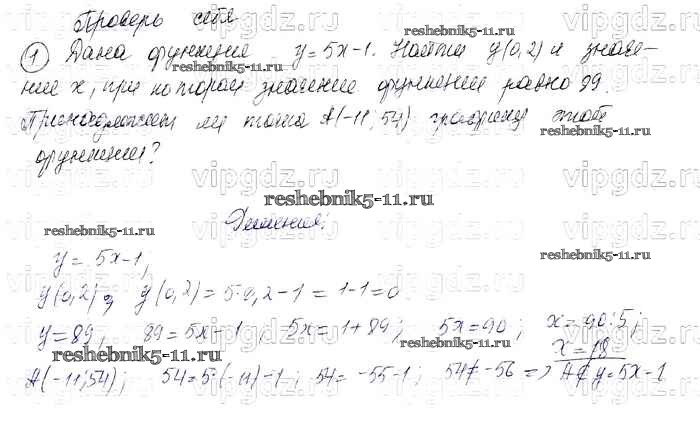 Проверь себя
① Дана функция y=5x-1. Найти y(0,2) и значе-
ние x, при котором значение функции равно 89.
Принадлежит ли точка A(-11; 54) графику этой
функции?
Решение:
y = 5x-1,
y(0,2) y(0,2) = 5·0,2-1 = 1-1=0
y=89, 89=5x-1; 5x=1+89; 5x=90; x=90:5;
x=18
A(-11;54); 54=5·(-11)-1; 54= -55-1; 54≠-56 => A∉y=5x-1
reshebnik5-11.ru
reshebnik5-11.ru
reshebnik5-11.ru
reshebnik5-11.ru
reshebnik5-11.ru
reshebnik5-11.ru
reshebnik5-11.ru
reshebnik5-11.ru
vipgdz.ru
vipgdz.ru
vipgdz.ru